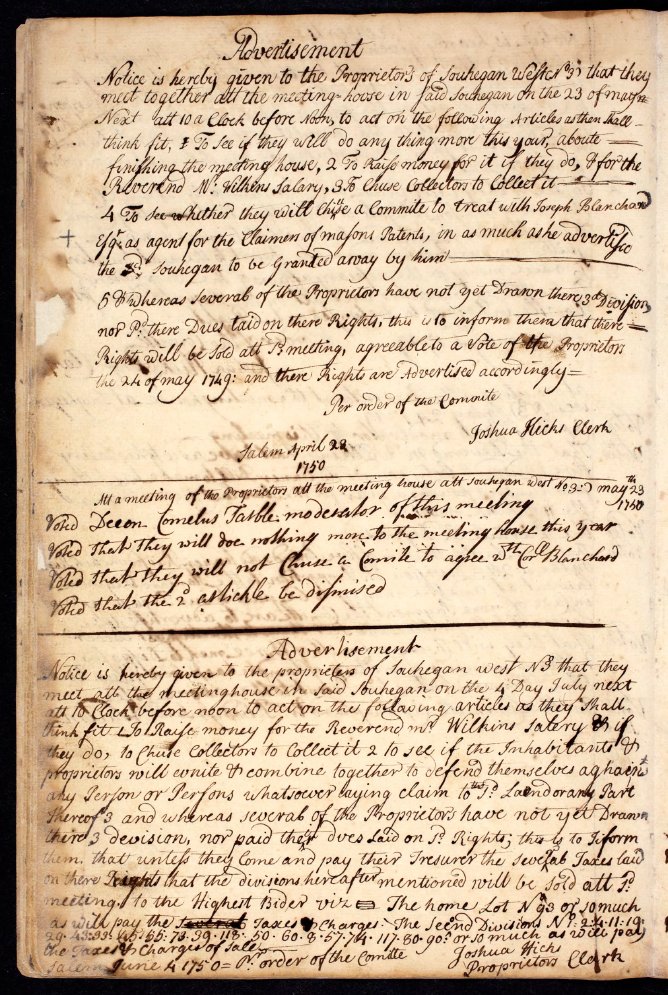 Advertisement
Notice is hereby given to the Proprietors of Souhegan West No 3 that they
meet together att the meeting-house in said Souhegan on the 23 of may
Next att 10 a Clock before Noon, to act on the following Articles as then shall
think fit, 1 To See if they will do any thing more this year, aboute
finishing the meeting house, 2 To Raise money for it if they do, & for the
Reverend Mr. Wilkens Salary, 3 To Chuse Collectors to Collect it
4 To see whether they will Chuse a Commite to treat with Joseph Blanchard
Esqr. as agent for the Claimers of masons Patents, in as much as he advertise
the sd. Souhegan to be Granted away by him
5 & whereas Several of the Proprietors have not yet Drawn there 3d Division
nor Pd. there Dues laid on there Rights, this is to inform them that there
Rights will be Sold att sd. meeting, agreeable to a Vote of the Proprietors
the 24 of may 1749: and there Rights are Advertised accordingly=
Per order of the Commite
Joshua Hicks Clerk
Salem April 28
1750
Att a meeting of the Proprietors att the meeting house att Souhegan west No 3 may 23th
1750
Voted Decon Cornelus Tarble moderator of this meeting
Voted that They will doe nothing more to the meeting house this year
Voted that they will not Chuse a Comite to agree wth Corl Blanchard
Voted that the 2d artickle be dismised
Advertisement
Notice is hereby given to the proprieters of Souhegan west No 3 that they
meet att the meetinghouse in Said Souhegan on the 4 Day July next
att 10 Clock before noon to act on the following articles as they Shall
think fit 1 To Raise money for the Reverend mr. Wilkins Salery & if
they do, to Chuse Collectors to Collect it 2 to see if the Inhabitants &
proprietors will unite & combine together to defend themselves against
any Person or Persons whatsoever laying claim to the sd. Land or any Part
thereof 3 and whereas several of the Proprietors have not yet Drawn
there 3 devision, nor paid their dues Laid on sd. Rights; this is to Iform
them, that unless they Come and pay their Tresurer the Several Taxes laid
on there Rights that the divisions hereafter mentioned will be Sold att sd.
meeting, to the Highest Bider viz The home Lot No 93 or so much
as will pay the Several Taxes & Charges. The Second Divisions No. 2.4.11.19.
the Taxes & Charges of Sale
Salem June 4 1750= Pr. order of the Comitte Joshua Hicks
Proprietors Clerk